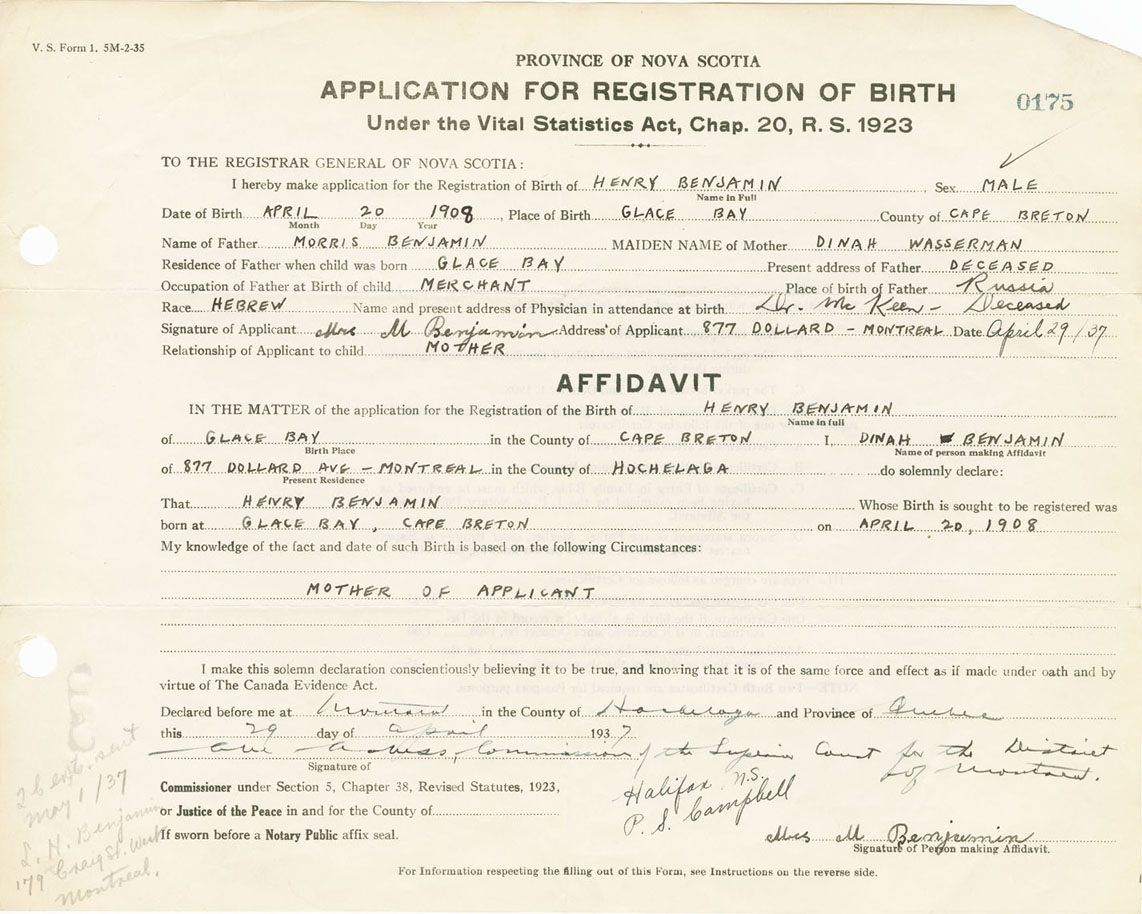 V. S. Form 1. 5M-2-35
PROVINCE OF NOVA SCOTIA
APPLICATION FOR REGISTRATION OF BIRTH
0175
Under the Vital Statistics Act, Chap. 20, R. S. 1923
TO THE REGISTRAR GENERAL OF NOVA SCOTIA:
I hereby make application for the Registration of Birth of HENRY BENJAMIN Sex MALE
Name in Full
Date of Birth APRIL 20 1908, Place of Birth GLACE BAY County of CAPE BRETON
Month Day Year
Name of Father MORRIS BENJAMIN MAIDEN NAME of Mother DINAH WASSERMAN
Residence of Father when child was born GLACE BAY Present address of Father DECEASED
Occupation of Father at Birth of child MERCHANT Place of birth of Father Russia
Race HEBREW Name and present address of Physician in attendance at birth Dr. McKeen - Deceased
Signature of Applicant Mrs M Benjamin Address of Applicant 877 DOLLARD - MONTREAL Date April 29/37
Relationship of Applicant to child MOTHER
AFFIDAVIT
IN THE MATTER of the application for the Registration of the Birth of HENRY BENJAMIN
Name in full
of GLACE BAY in the County of CAPE BRETON I, DINAH BENJAMIN
Birth Place Name of person making Affidavit
of 877 DOLLARD AVE - MONTREAL in the County of HOCHELAGA do solemnly declare:
Present Residence
That HENRY BENJAMIN Whose Birth is sought to be registered was
born at GLACE BAY, CAPE BRETON on APRIL 20, 1908
My knowledge of the fact and date of such Birth is based on the following Circumstances:
MOTHER OF APPLICANT
I make this solemn declaration conscientiously believing it to be true, and knowing that it is of the same force and effect as if made under oath and by
virtue of The Canada Evidence Act.
Declared before me at Montreal in the County of Hochelaga and Province of Quebec
this 29 day of april 1937
Commissioner of the Superior Court for the District
of Montreal.
Signature of
Commissioner under Section 5, Chapter 38, Revised Statutes, 1923,
or Justice of the Peace in and for the County of
If sworn before a Notary Public affix seal.
Halifax N.S.
P. S. Campbell
Mrs M Benjamin
Signature of Person making Affidavit.
For Information respecting the filling out of this Form, see Instructions on the reverse side.
2 cert. sent
May 1/37
L. H. Benjamin
179 Craig St. West
Montreal.